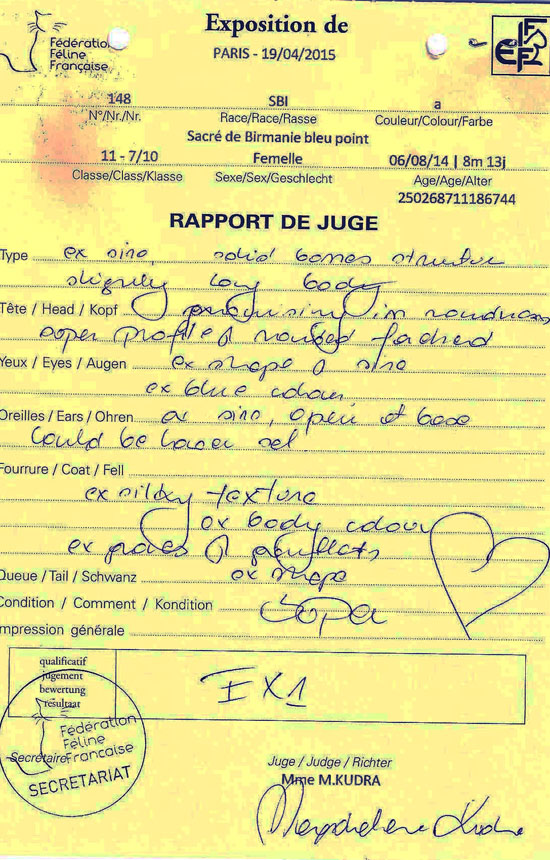 Exposition de
Fédération
Féline
Française
PARIS - 19/04/2015
FIFe
148 SBI a
N°/Nr./Nr. Race/Race/Rasse Couleur/Colour/Farbe
Sacré de Birmanie bleu point
11 - 7/10 Femelle 06/08/14 | 8m 13j
Classe/Class/Klasse Sexe/Sex/Geschlecht Age/Age/Alter
250268711186744
RAPPORT DE JUGE
Type ex size, solid bones structure
slightly long body
Tête / Head / Kopf in roundness
super profile & rounded forehead
Yeux / Eyes / Augen ex shape & size
ex blue colour
Oreilles / Ears / Ohren ex size, open at base
could be lower set
Fourrure / Coat / Fell
ex silky texture
ex body colour
ex gloves & gauntlets
Queue / Tail / Schwanz ex shape
Condition / Comment / Kondition Super
mpression générale
qualificatif
jugement
bewertung
résultaat
EX1
Fédération
Féline
Française
Secrétaire
SECRETARIAT
Juge / Judge / Richter
Mme M.KUDRA
Magdalena Kudra